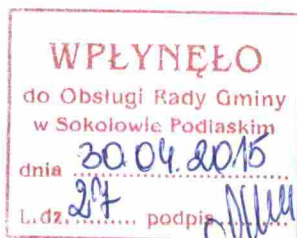 WPŁYNĘŁO
do Obsługi Rady Gminy
w Sokołowie Podlaskim
dnia 30.04.2015
L.dz. 27 podpis